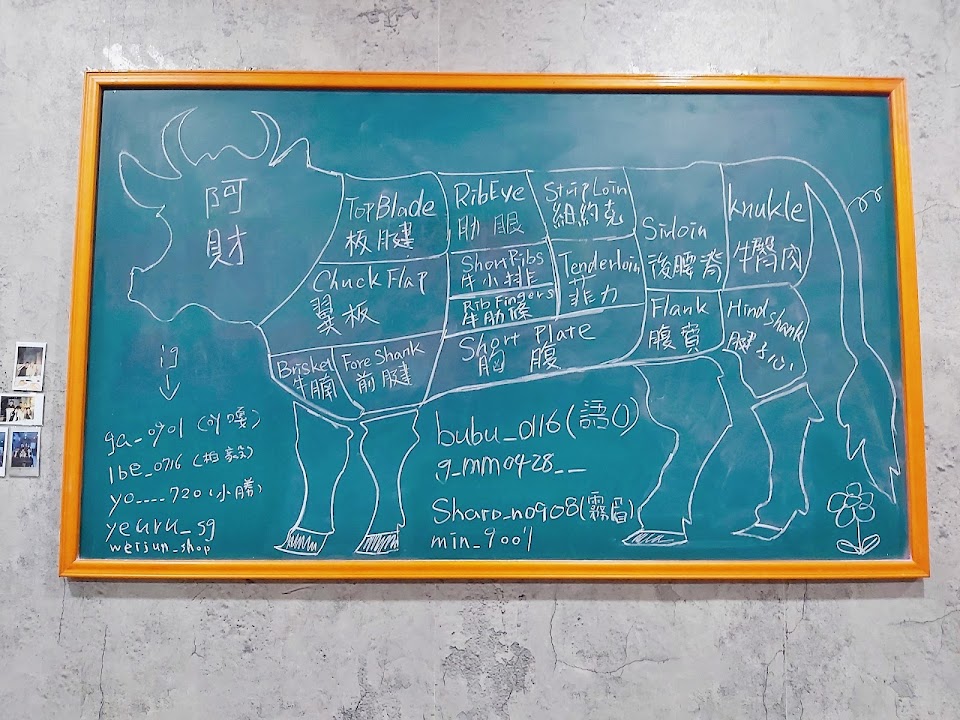 阿
財
TopBlade
板腱
Chuck Flap
翼板
Brisket
牛腩
Fore Shank
前腱
RibEye
肋眼
Short Ribs
牛小排
Rib Fingers
牛肋條
Short Plate
胸腹
StripLoin
紐約克
Tenderloin
菲力
Sirloin
後腰脊
Flank
腹賁
knukle
牛臀肉
Hind Shank
腱子心
ig
ga_0701 (吖嘎)
lbe_0716 (柏毅)
yo____720 (小勝)
yeuru_sg
weijun_shop
bubu_0116 (語)
g_mm0428__
Sharo_no908 (霧眉)
min_9001